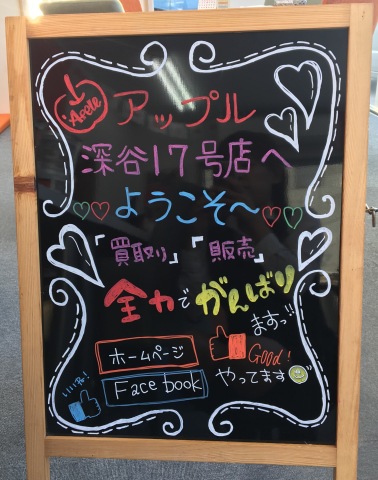 Apple アップル
深谷17号店へ
ようこそ～
「買取り」「販売」
全力でがんばり
ますっ!!
ホームページ
Good!
Face book
やってます